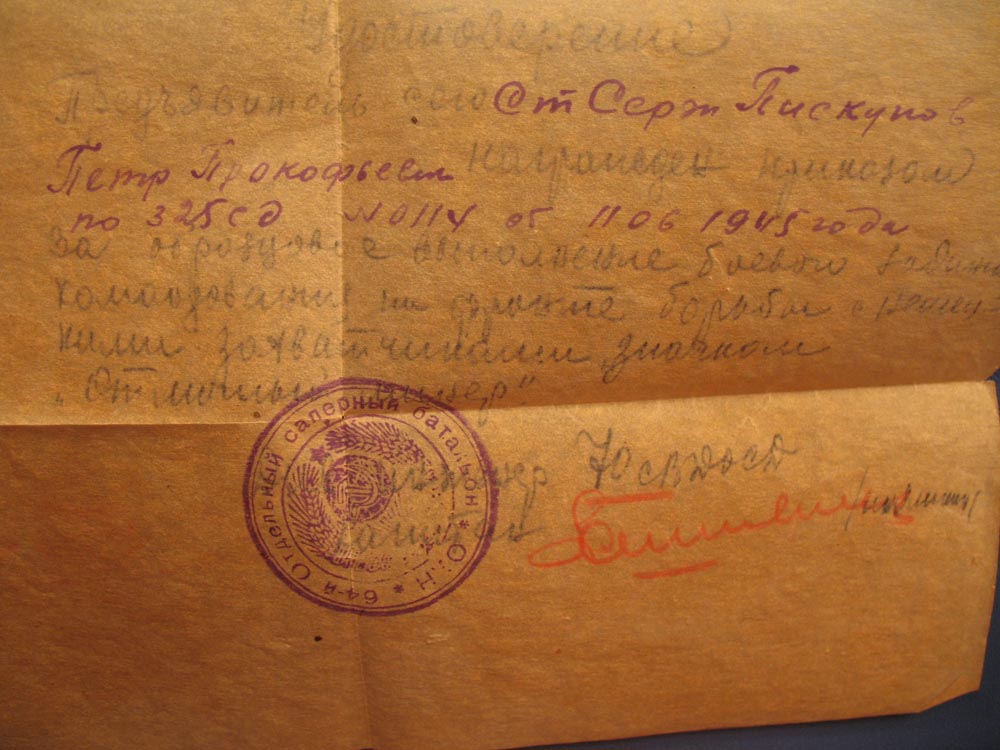 Удостоверение
Предъявитель сего Ст Серж Пискунов
Петр Прокофьевич награжден приказом
по 325 сд N 0114 от 11 06 1945 года
За образцовое выполнение боевого
командования на фронте борьбы с
кими захватчиками значком
„Отличный минер"
капитан
64-й Отдельный саперный батальон * Н